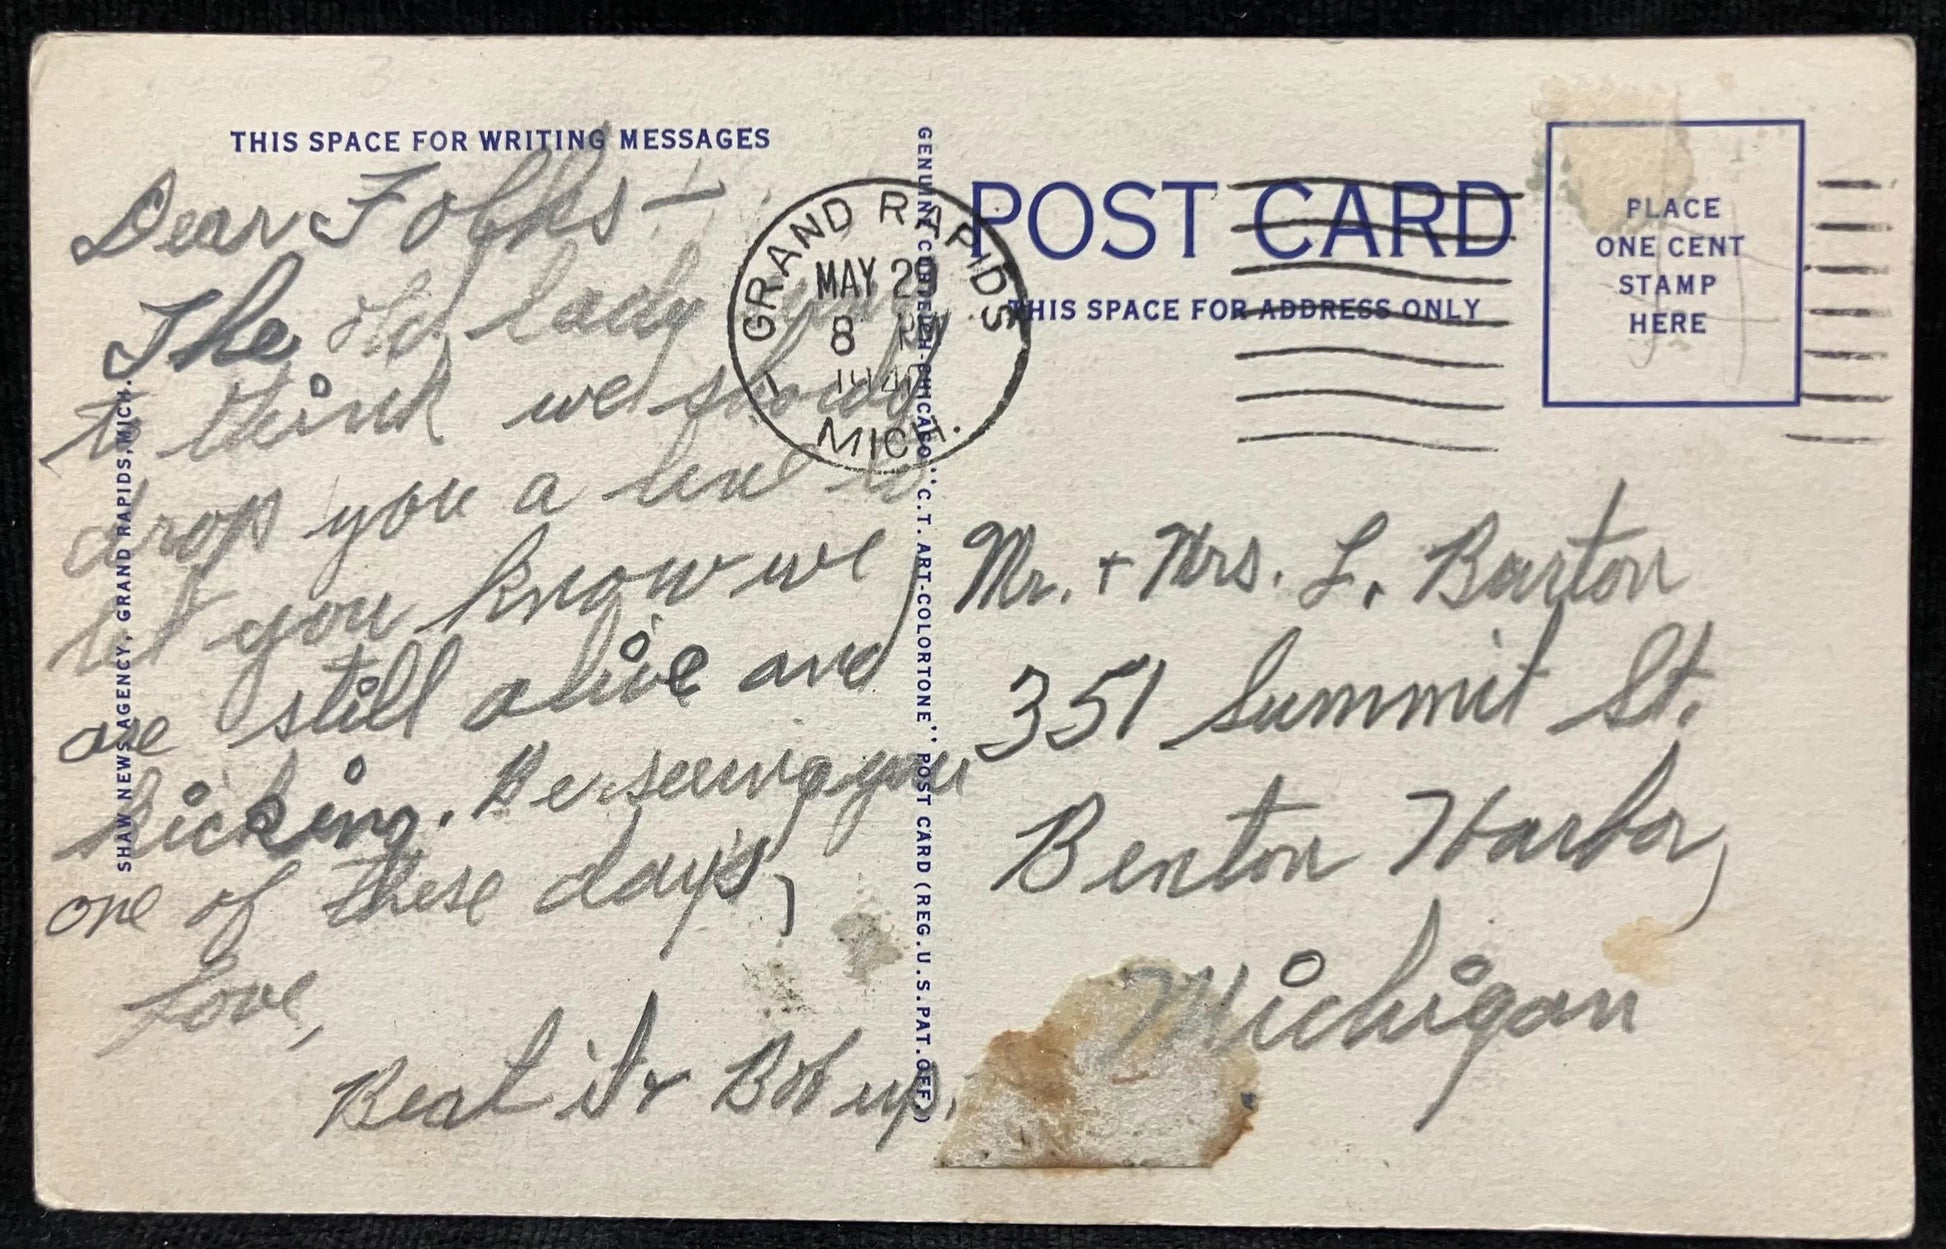 THIS SPACE FOR WRITING MESSAGES
Dear Folks —
The old lady
to think we should
drop you a line to
let you know we
are still alive and
kicking. Be seeing you
one of these days,
Love,
Beat it & Bob up.
SHAW NEWS AGENCY, GRAND RAPIDS, MICH.
GENUINE CURTEICH-CHICAGO "C.T. ART-COLORTONE" POST CARD (REG. U.S. PAT. OFF.)
GRAND RAPIDS
MAY
8
MICH.
1
POST CARD
THIS SPACE FOR ADDRESS ONLY
PLACE
ONE CENT
STAMP
HERE
Mr. + Mrs. L. Barton
351 Summit St.
Benton Harbor,
Michigan